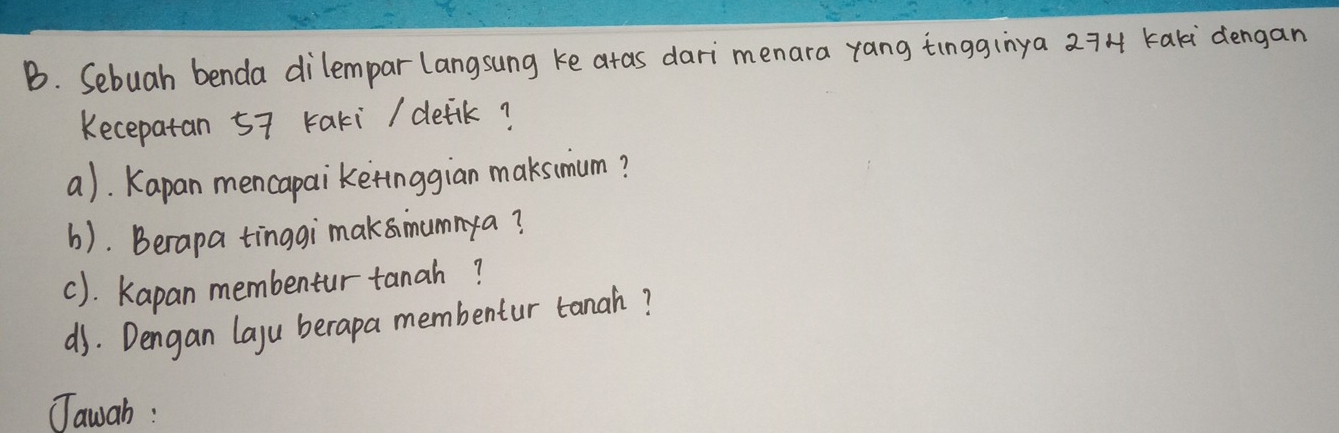 B. Sebuah benda dilempar langsung ke atas dari menara yang tingginya 274 kaki dengan
Kecepatan 57 kaki / detik ?
a). Kapan mencapai ketinggian maksimum ?
b). Berapa tinggi maksimumnya ?
c). Kapan membentur tanah ?
d). Dengan laju berapa membentur tanah ?
Jawab :